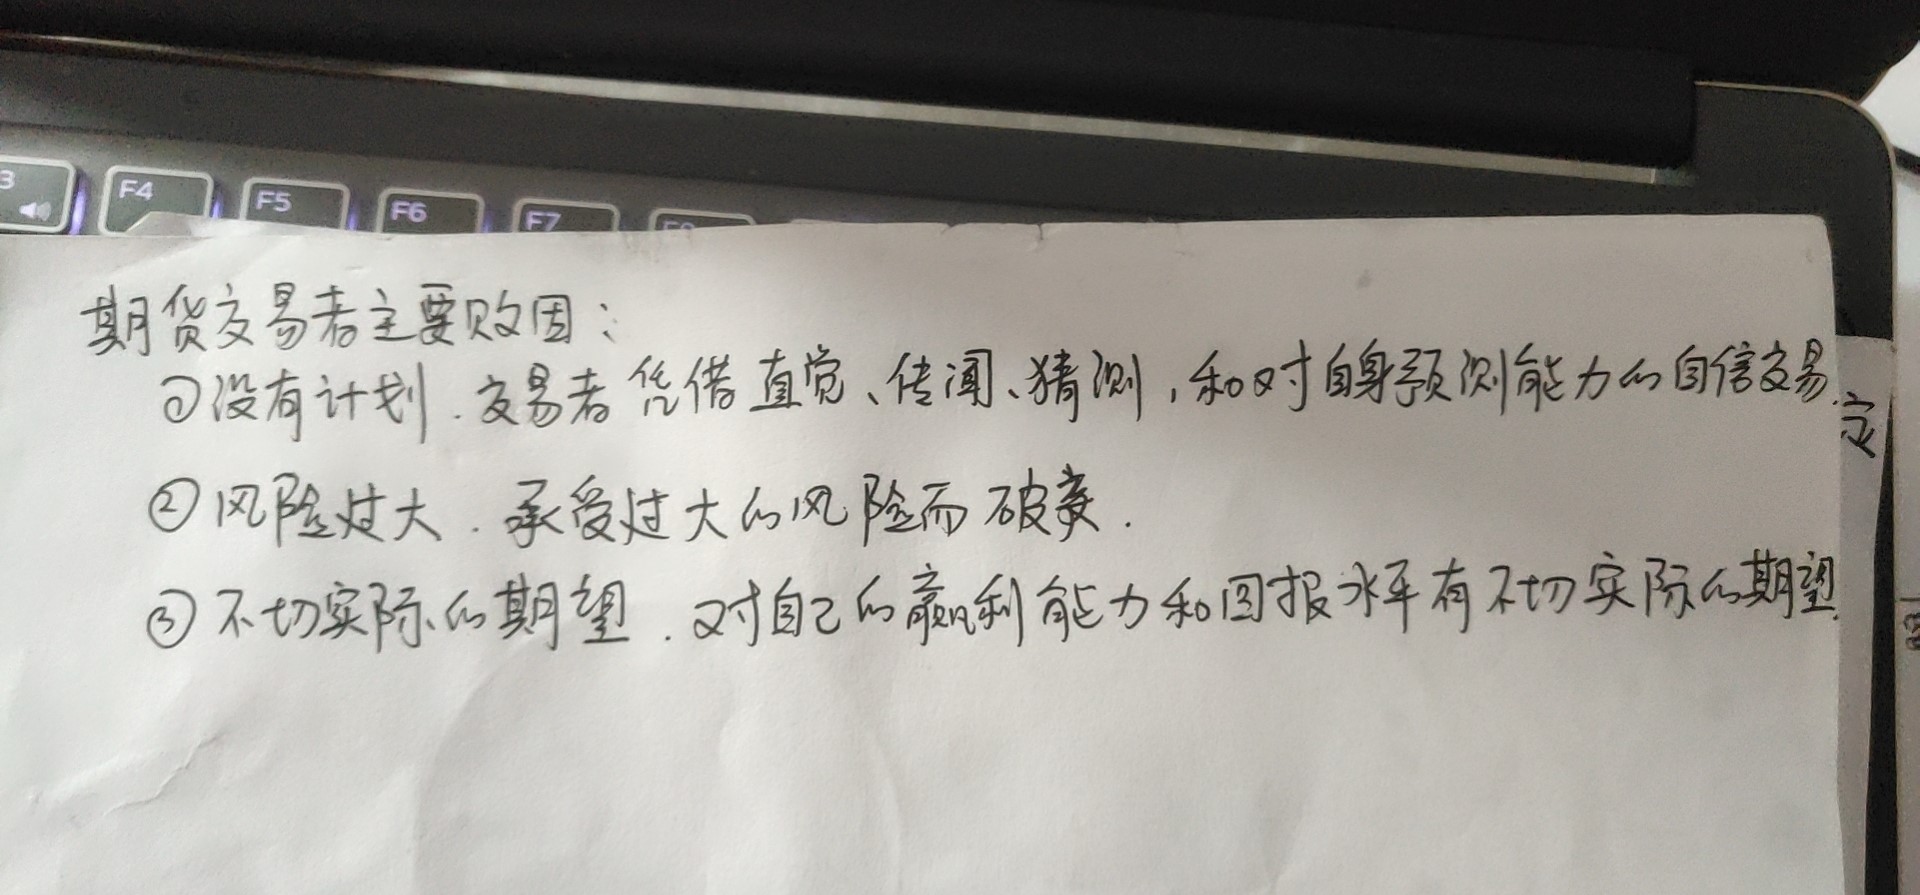 3
F4
F5
F6
F7
期货交易者主要败因：
①没有计划.交易者凭借直觉、传闻、猜测,和对自身预测能力的自信交易.
定
②风险过大.承受过大的风险而破产.
③不切实际的期望.对自己的赢利能力和回报水平有不切实际的期望.